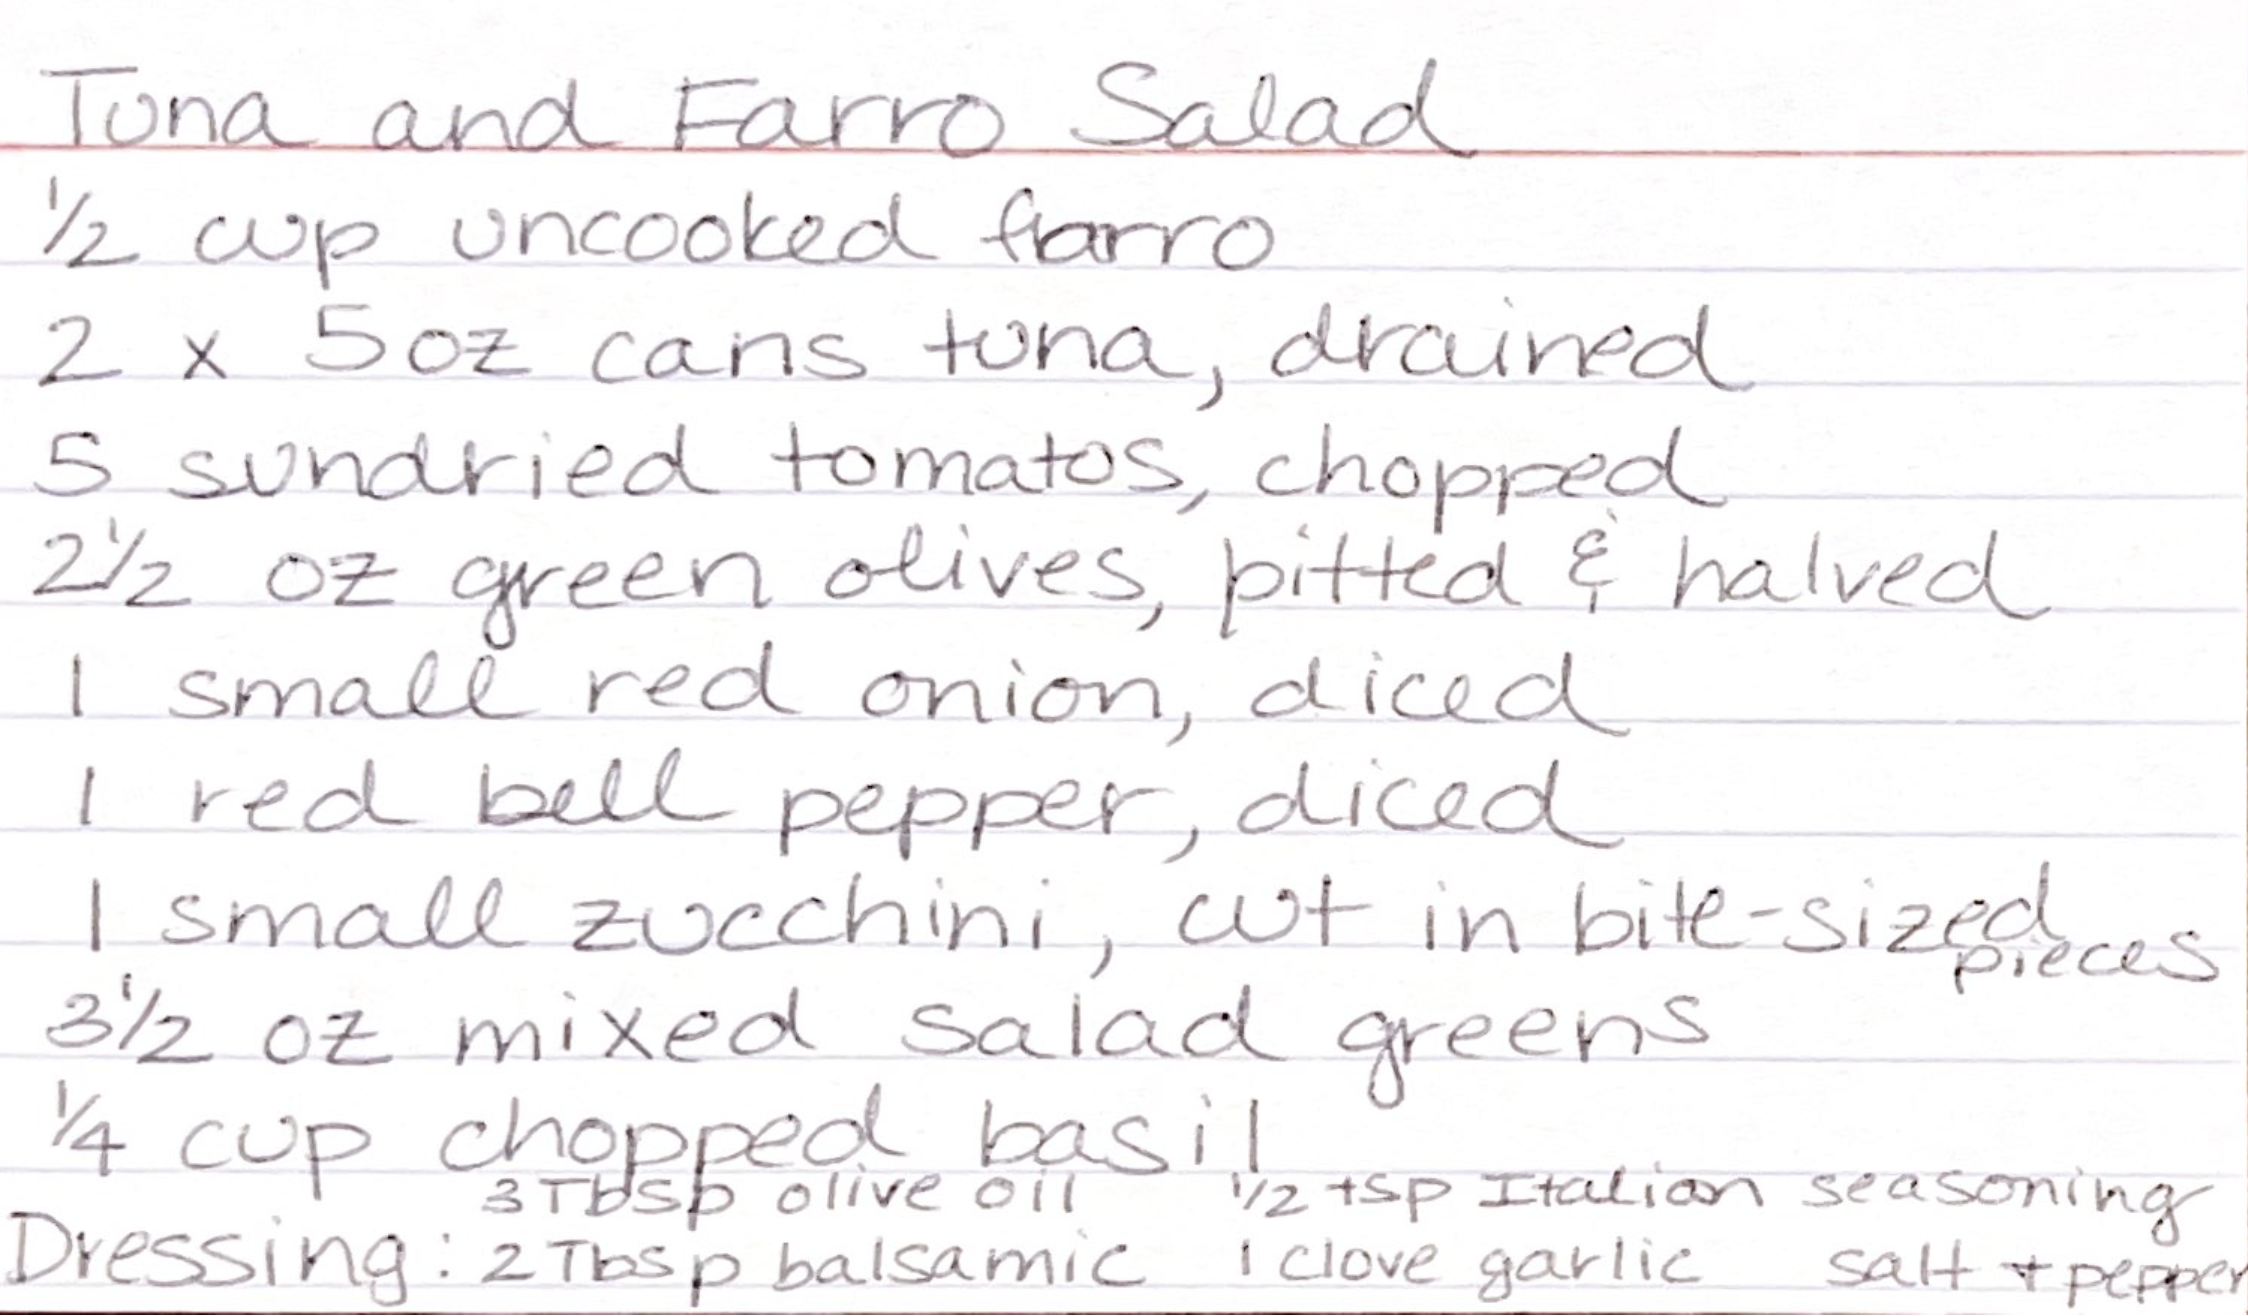 Tuna and Farro Salad
1/2 cup uncooked farro
2 x 5 oz cans tuna, drained
5 sundried tomatos, chopped
2 1/2 oz green olives, pitted & halved
1 small red onion, diced
1 red bell pepper, diced
1 small zucchini, cut in bite-sized
pieces
3 1/2 oz mixed salad greens
1/4 cup chopped basil
3 Tbsp olive oil 1/2 tsp Italian seasoning
Dressing: 2 Tbsp balsamic 1 clove garlic salt + pepper